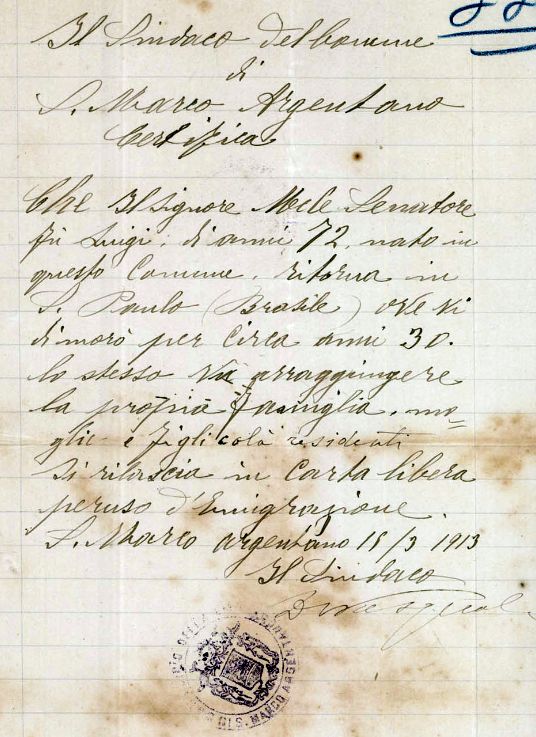 Il Sindaco del Comune
di
S. Marco Argentano
Certifica
Che Il Signore Mele Senatore
fù Luigi, di anni 72, nato in
questo Comune, ritorna in
S. Paulo (Brasile) ove vi
dimorò per circa anni 30.
lo stesso và arraggiungere
la propria famiglia, mo=
glie e figli colà residenti
Si rilascia in Carta libera
peruso d'Emigrazione.
S. Marco argentano 15/3 1913
Il Sindaco
DI S. MARCO ARGENTANO